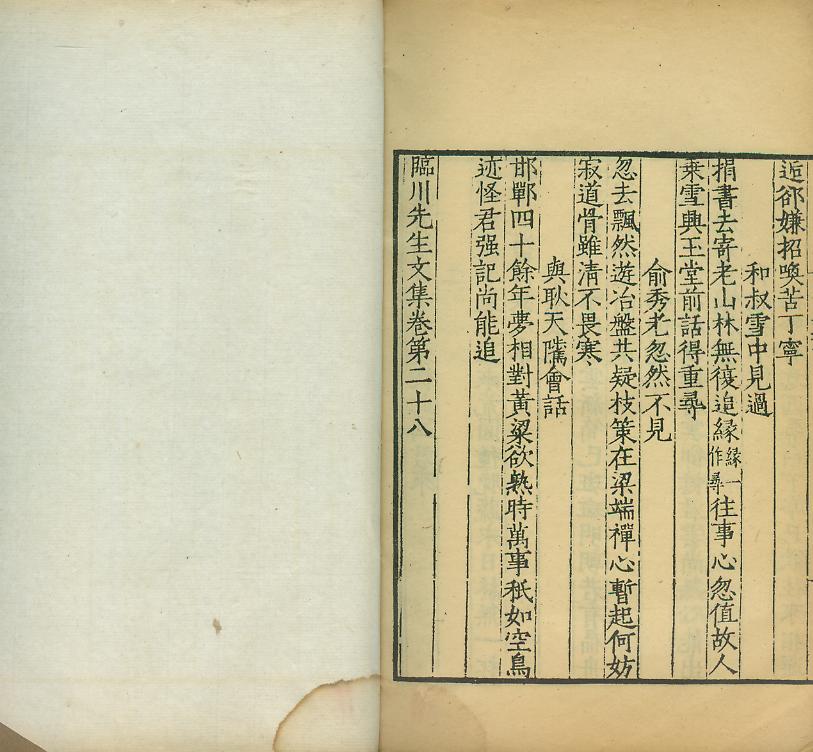 近郤嫌招喚苦丁寧
和叔雪中見過
捐書去寄老山林無復追緣緣一作尋往事心忽值故人
乗雪興玉堂前話得重尋
俞秀老忽然不見
忽去飄然遊冶盤共疑枝策在梁端禪心暫起何妨
寂道骨雖清不畏寒
與耿天隲會話
邯鄲四十餘年夢相對黃粱欲熟時萬事秖如空鳥
迹怪君强記尚能追
臨川先生文集卷第二十八